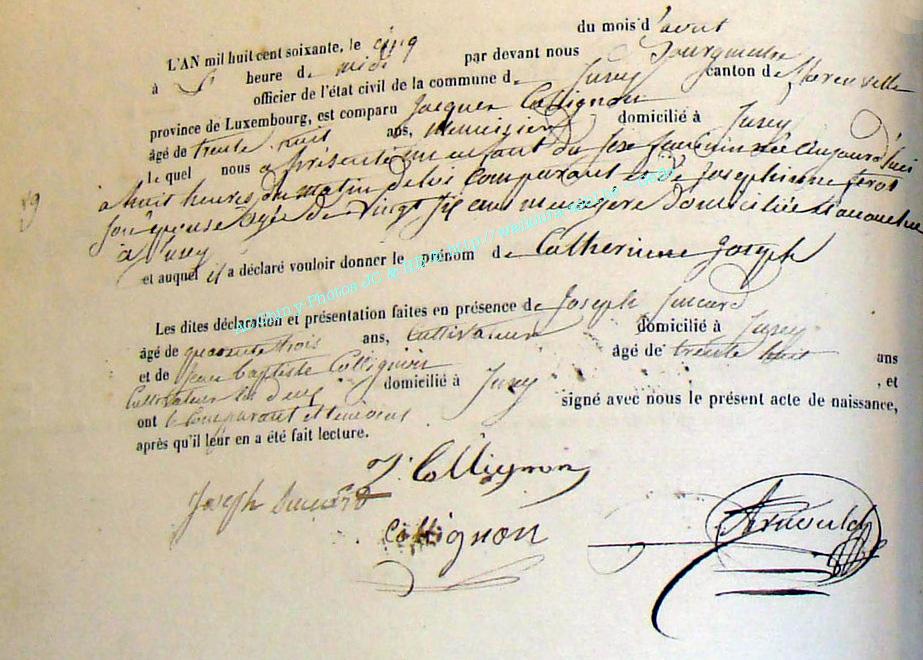 L'AN mil huit cent soixante, le cinq du mois d'avril
à heure de midi par devant nous Bourgmestre
officier de l'état civil de la commune de Jusey canton de
province de Luxembourg, est comparu Jacques Collignon
âgé de trente huit ans, menuisier domicilié à Jusey
le quel nous a présenté un enfant du sexe feminin née aujourd'hui
à huit heures du matin de lui comparant et de Josephinne
son epouse agée de vingt six ans menagere domiciliée
à Jusey
et auquel il a déclaré vouloir donner le prénom de Catherinne Joseph
Les dites déclaration et présentation faites en présence de Joseph
âgé de quarente trois ans, Cultivateur domicilié à Jusey
et de Jean Baptiste Collignon âgé de trente huit ans
Cultivateur les deux domicilié à Jusey , et
ont le comparant et temoins signé avec nous le présent acte de naissance,
après qu'il leur en a été fait lecture.
J. Collignon
Joseph
Collignon
59